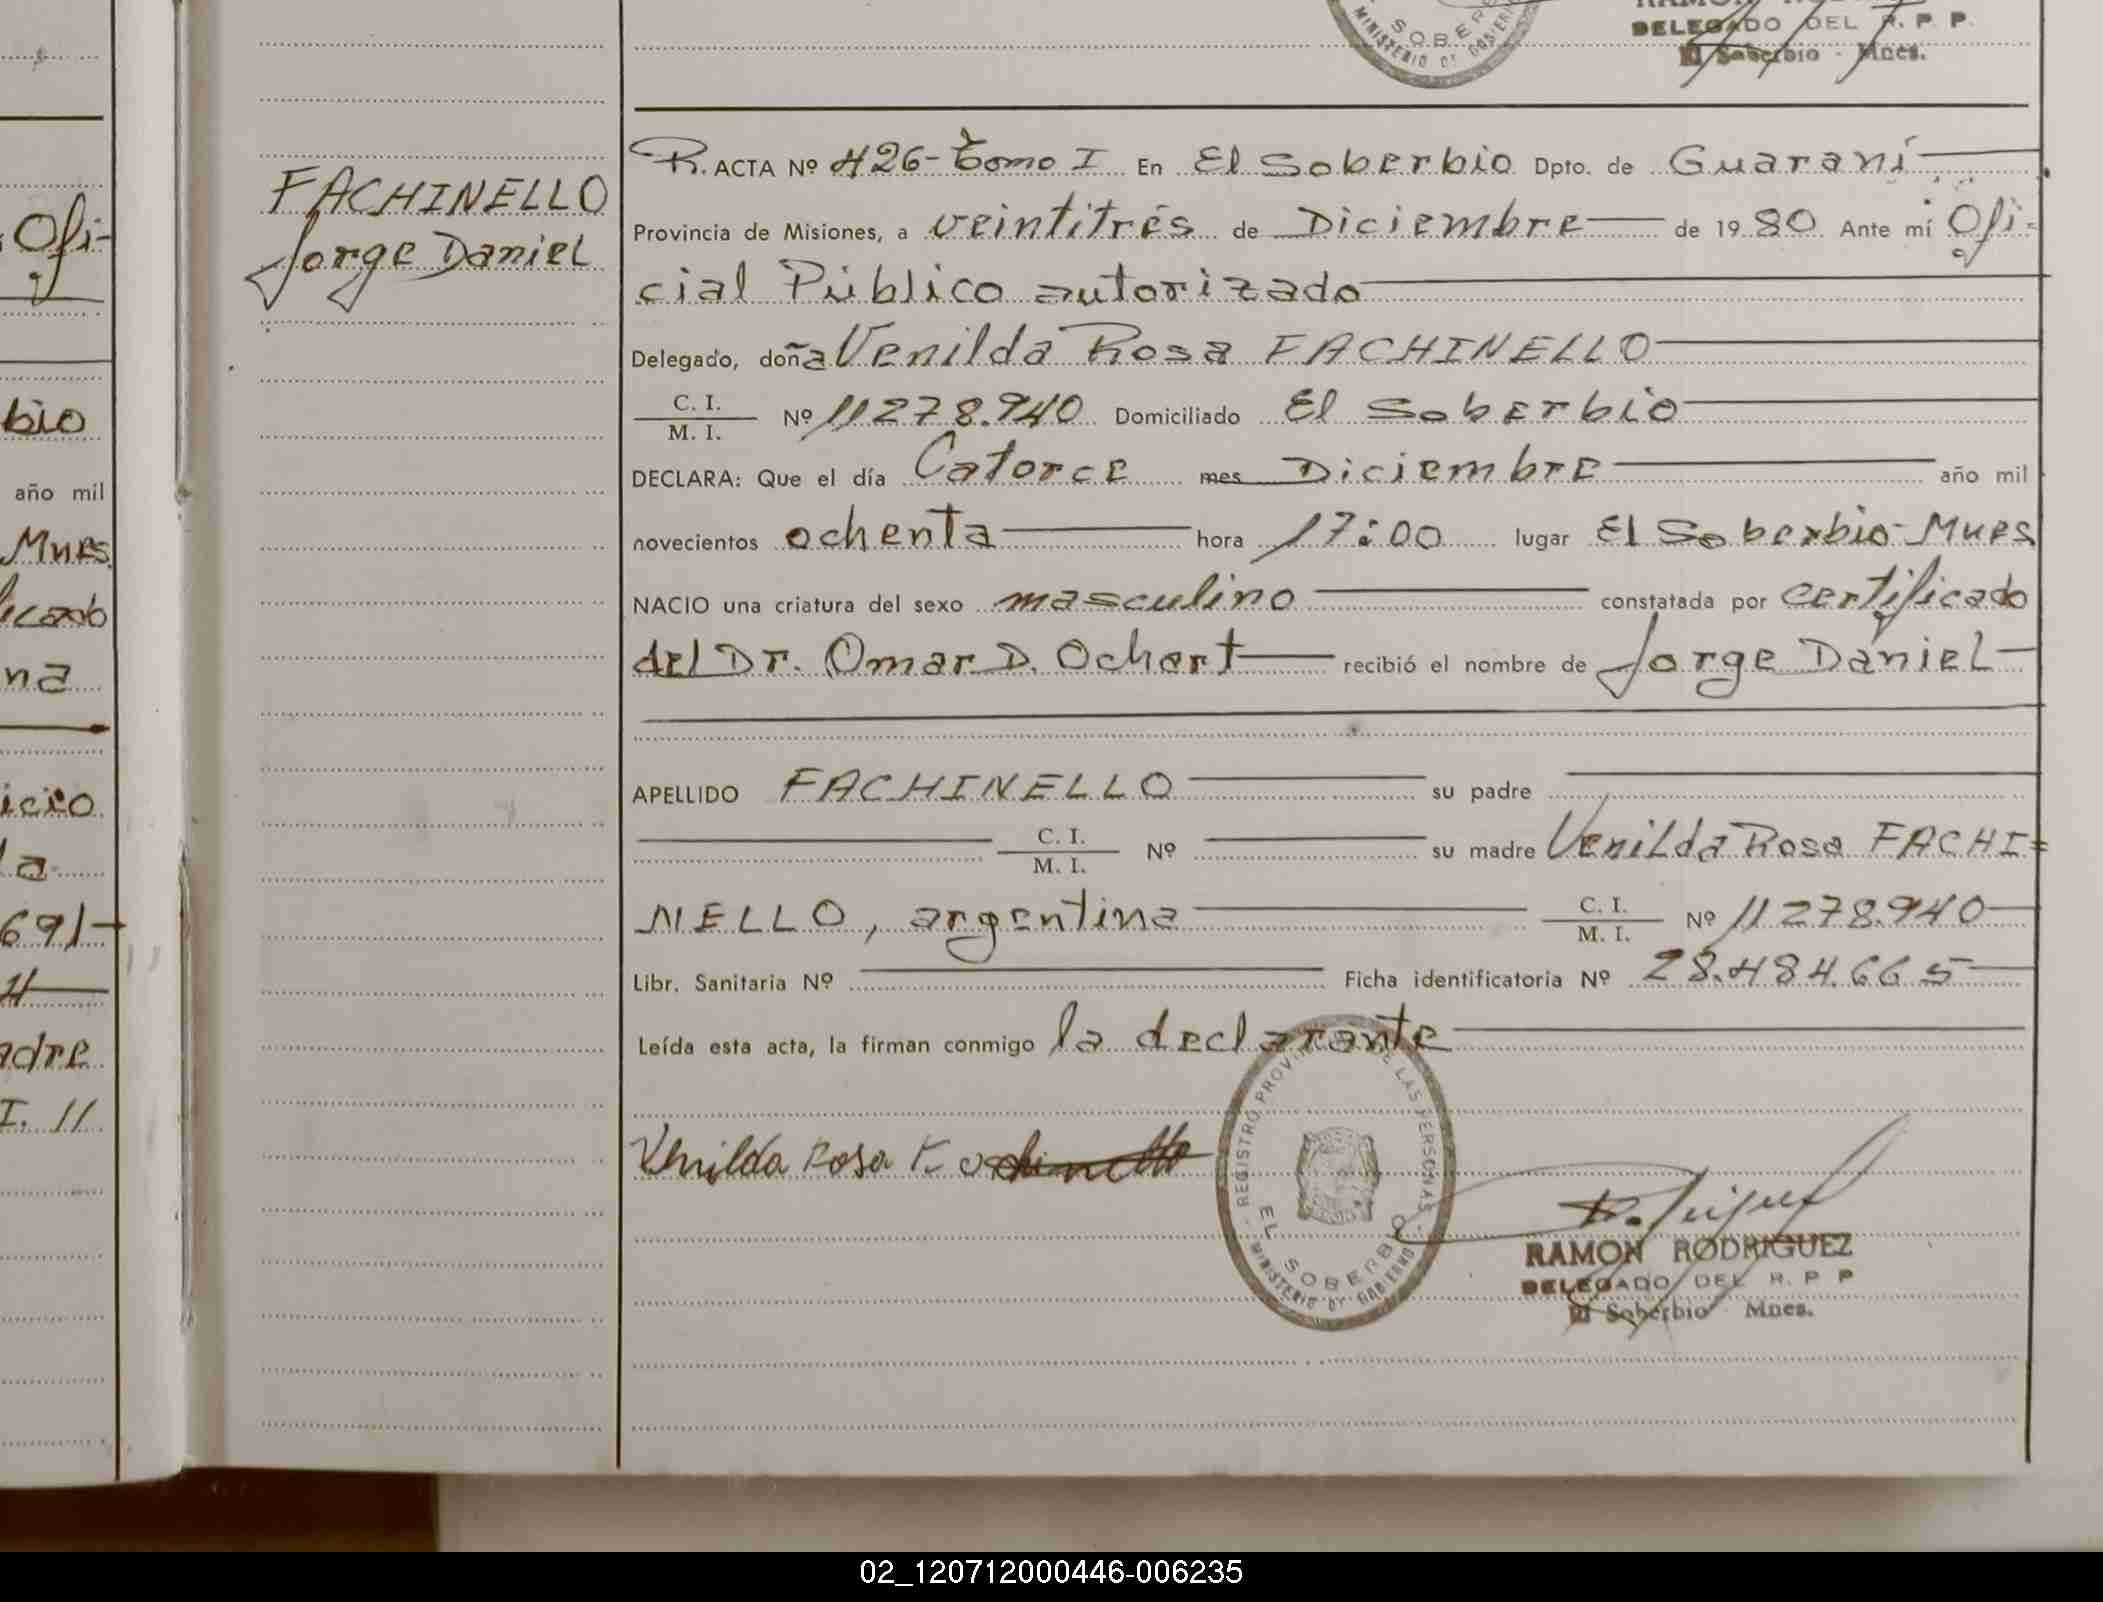 SOBERB
MINISTERIO DE GOBIERNO
DELEGADO DEL R. P. P.
El Soberbio - Mnes.
Ofi-
bio
año mil
Mnes
icado
na
icio
la
691-
adre
I. 11
FACHINELLO
Jorge Daniel
R. ACTA Nº 426- Tomo I En El Soberbio Dpto. de Guaraní
Provincia de Misiones, a veintitrés de Diciembre de 1980 Ante mí Ofi-
cial Público autorizado
Delegado, doña Venilda Rosa FACHINELLO
C. I.
M. I. Nº 11278.940 Domiciliado El Soberbio
DECLARA: Que el día Catorce mes Diciembre año mil
novecientos ochenta hora 17:00 lugar El Soberbio-Mnes
NACIO una criatura del sexo masculino constatada por certificado
del Dr. Omar D. Ochart recibió el nombre de Jorge Daniel
APELLIDO FACHINELLO su padre
C. I.
M. I. Nº su madre Venilda Rosa FACHI=
NELLO, argentina C. I.
M. I. Nº 11278.940
Libr. Sanitaria Nº Ficha identificatoria Nº 28.484.665
Leída esta acta, la firman conmigo la declarante
Venilda Rosa
REGISTRO PROVINCIAL DE LAS PERSONAS
EL SOBERBIO
MINISTERIO DE GOBIERNO
RAMON RODRIGUEZ
DELEGADO DEL R. P P
El Soberbio Mnes.
02_120712000446-006235